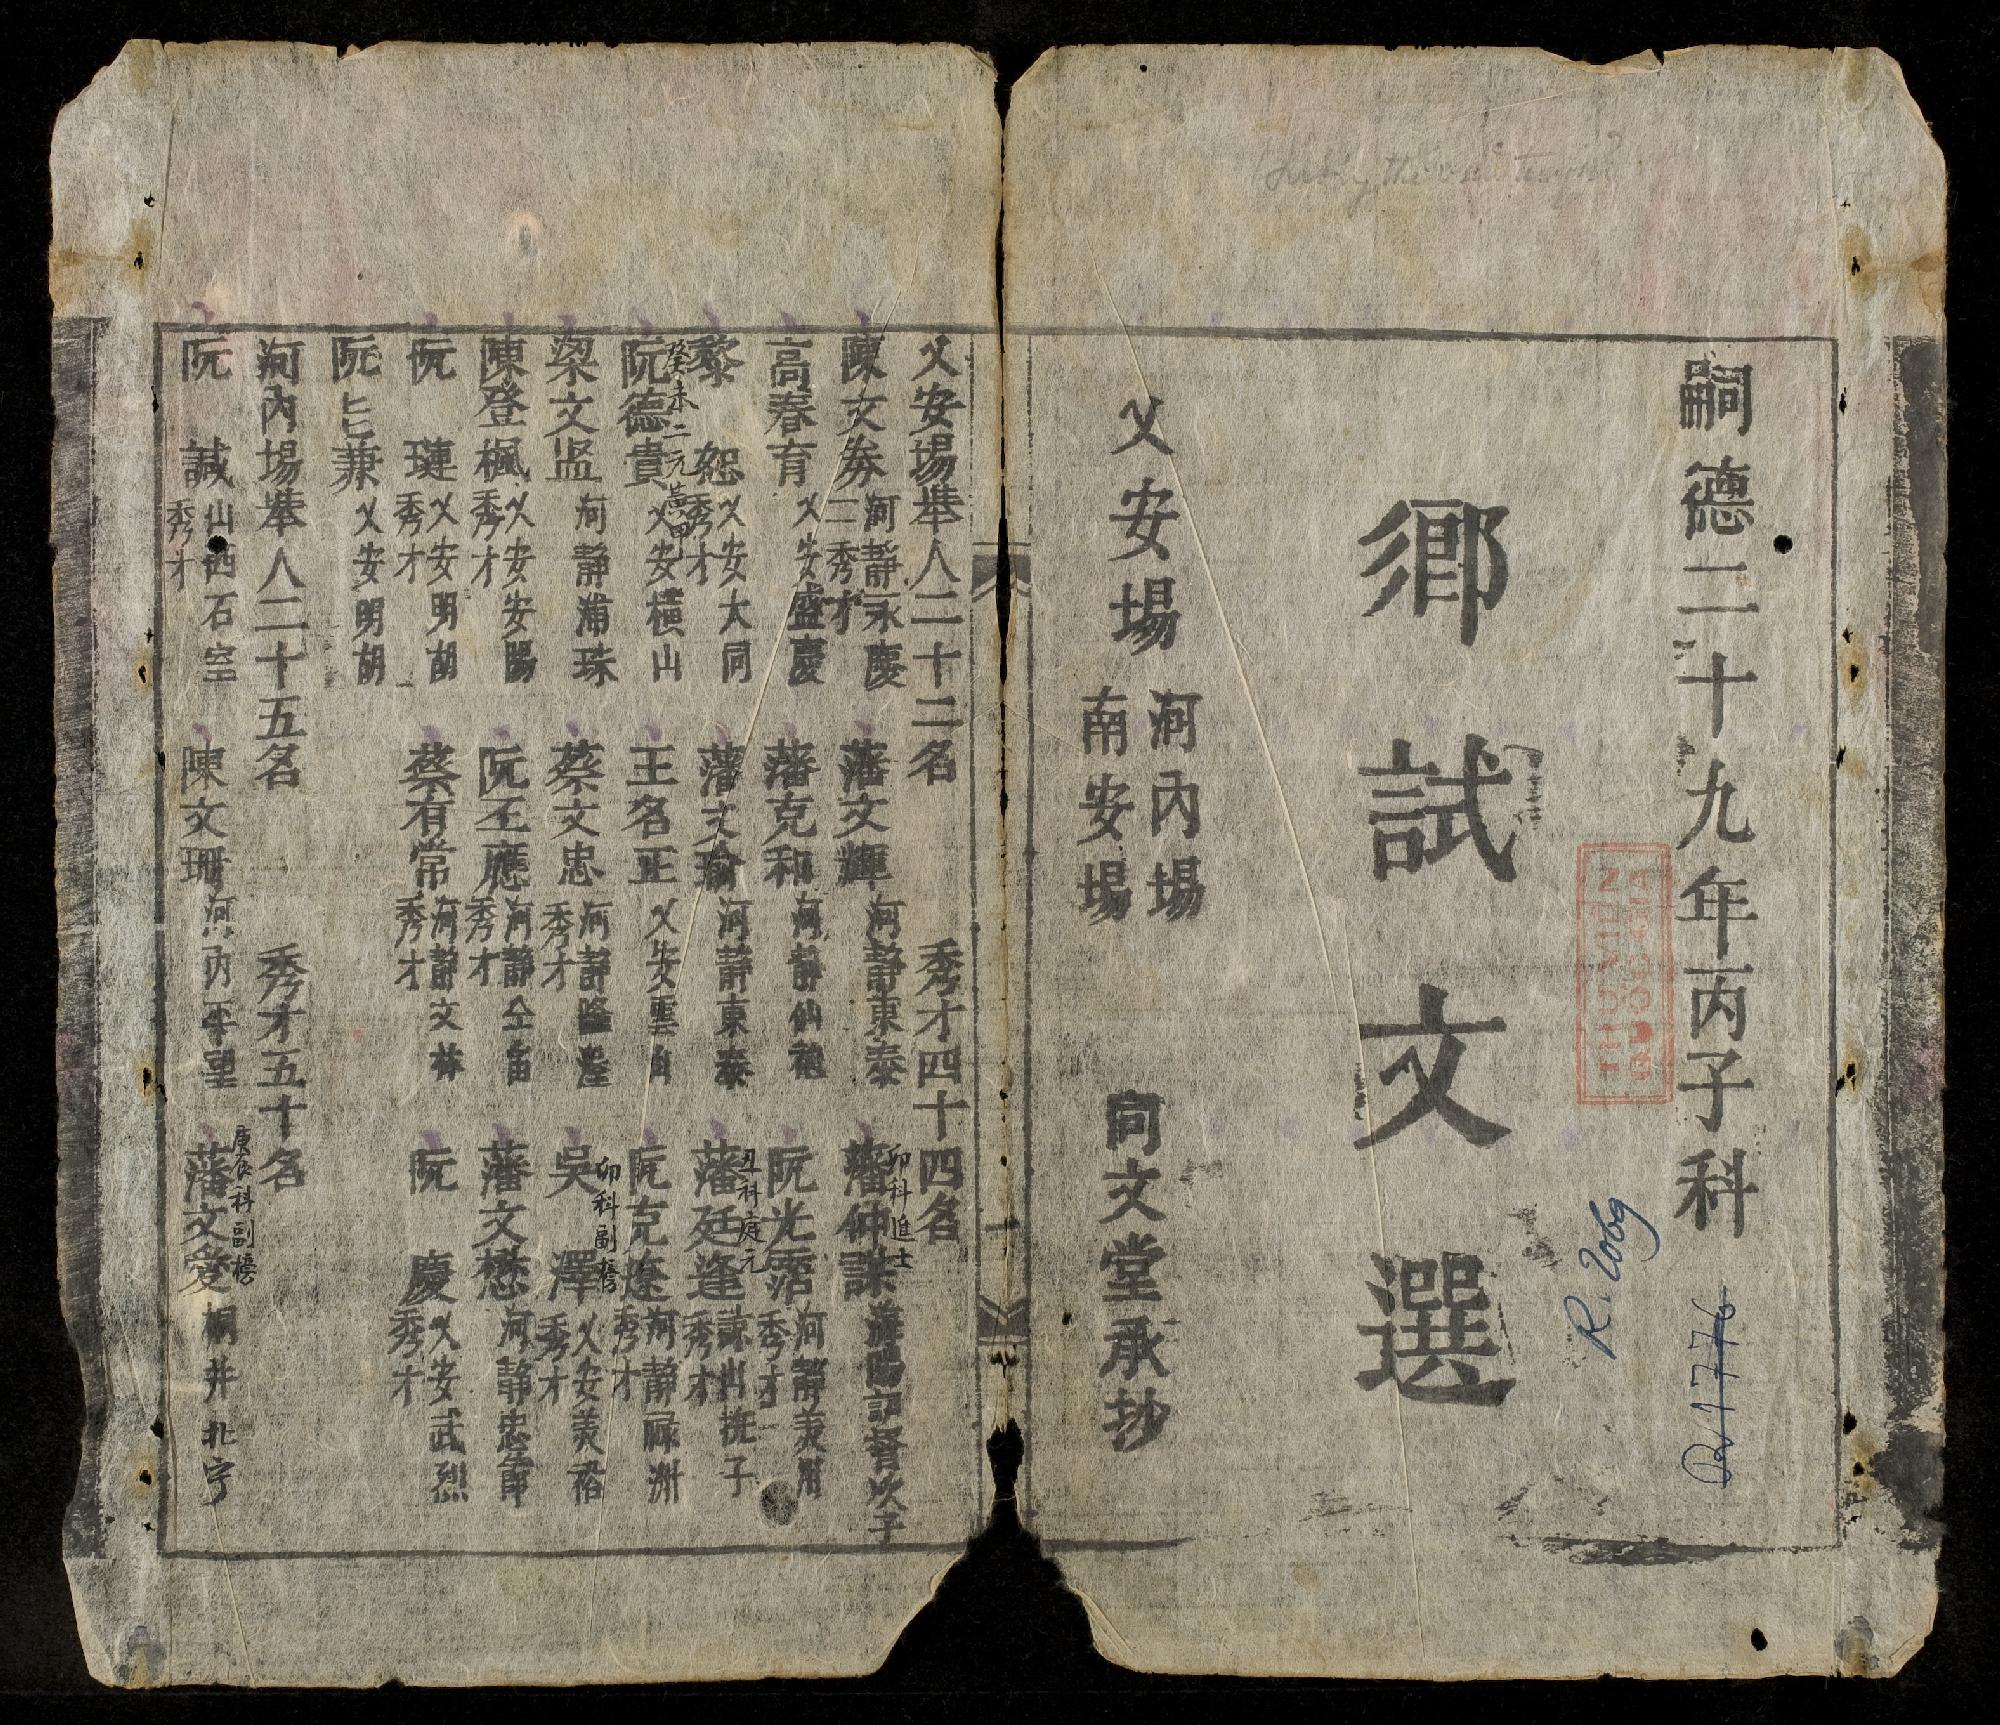 嗣德二十九年丙子科
R. 2069
R. 1776
鄉試文選
乂安場
河內場
南安場
同文堂承抄
乂安場舉人二十二名 秀才四十四名
陳文券 河靜永慶 二秀才 藩文輝 河靜東泰 藩仲謀 卯科進士
高春育 乂安盛慶 藩克和 河靜仙 阮光 河靜美用 秀才
黎恕 乂安大同 秀才 藩文瑜 河靜東泰 藩廷逢 丑科庭元 諒山撫子 秀才
阮德貴 癸未二元黃甲 乂安橫山 王名正 乂安雲 阮克 河靜祿洲 秀才
梁文 河靜浦珠 蔡文忠 河靜隆 秀才 吳澤 卯科副榜 乂安美裕 秀才
陳登楓 乂安安陽 秀才 阮丕應 河靜 秀才 藩文懋 河靜忠節
阮璉 乂安明胡 秀才 蔡有常 河靜文林 秀才 阮慶 乂安武烈 秀才
阮兼 乂安明胡
河內場舉人二十五名 秀才五十名
阮諴 山西石室 秀才 陳文珊 河內平望 藩文愛 庚辰科副榜 桐井北宁